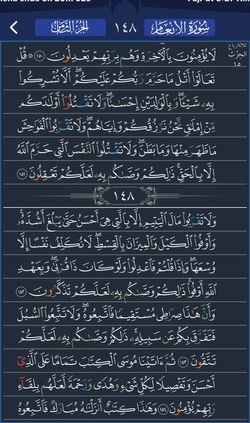 سُورَةُ الأَنْعَامِ ١٤٨ الجُزْءُ الثَّامِنُ
لَا يُؤْمِنُونَ بِٱلْـَٔاخِرَةِ وَهُم بِرَبِّهِمْ يَعْدِلُونَ ١٥٠ ۞ قُلْ
تَعَالَوْا۟ أَتْلُ مَا حَرَّمَ رَبُّكُمْ عَلَيْكُمْ ۖ أَلَّا تُشْرِكُوا۟
بِهِۦ شَيْـًٔا ۖ وَبِٱلْوَٰلِدَيْنِ إِحْسَٰنًا ۖ وَلَا تَقْتُلُوٓا۟ أَوْلَٰدَكُم
مِّنْ إِمْلَٰقٍ ۖ نَّحْنُ نَرْزُقُكُمْ وَإِيَّاهُمْ ۖ وَلَا تَقْرَبُوا۟ ٱلْفَوَٰحِشَ
مَا ظَهَرَ مِنْهَا وَمَا بَطَنَ ۖ وَلَا تَقْتُلُوا۟ ٱلنَّفْسَ ٱلَّتِى حَرَّمَ ٱللَّهُ
إِلَّا بِٱلْحَقِّ ۚ ذَٰلِكُمْ وَصَّىٰكُم بِهِۦ لَعَلَّكُمْ تَعْقِلُونَ ١٥١
١٤٨
وَلَا تَقْرَبُوا۟ مَالَ ٱلْيَتِيمِ إِلَّا بِٱلَّتِى هِىَ أَحْسَنُ حَتَّىٰ يَبْلُغَ أَشُدَّهُۥ ۖ
وَأَوْفُوا۟ ٱلْكَيْلَ وَٱلْمِيزَانَ بِٱلْقِسْطِ ۖ لَا نُكَلِّفُ نَفْسًا إِلَّا
وُسْعَهَا ۖ وَإِذَا قُلْتُمْ فَٱعْدِلُوا۟ وَلَوْ كَانَ ذَا قُرْبَىٰ ۖ وَبِعَهْدِ
ٱللَّهِ أَوْفُوا۟ ۚ ذَٰلِكُمْ وَصَّىٰكُم بِهِۦ لَعَلَّكُمْ تَذَكَّرُونَ ١٥٢
وَأَنَّ هَٰذَا صِرَٰطِى مُسْتَقِيمًا فَٱتَّبِعُوهُ ۖ وَلَا تَتَّبِعُوا۟ ٱلسُّبُلَ
فَتَفَرَّقَ بِكُمْ عَن سَبِيلِهِۦ ۚ ذَٰلِكُمْ وَصَّىٰكُم بِهِۦ لَعَلَّكُمْ
تَتَّقُونَ ١٥٣ ثُمَّ ءَاتَيْنَا مُوسَى ٱلْكِتَٰبَ تَمَامًا عَلَى ٱلَّذِىٓ
أَحْسَنَ وَتَفْصِيلًا لِّكُلِّ شَىْءٍ وَهُدًى وَرَحْمَةً لَّعَلَّهُم بِلِقَآءِ
رَبِّهِمْ يُؤْمِنُونَ ١٥٤ وَهَٰذَا كِتَٰبٌ أَنزَلْنَٰهُ مُبَارَكٌ فَٱتَّبِعُوهُ